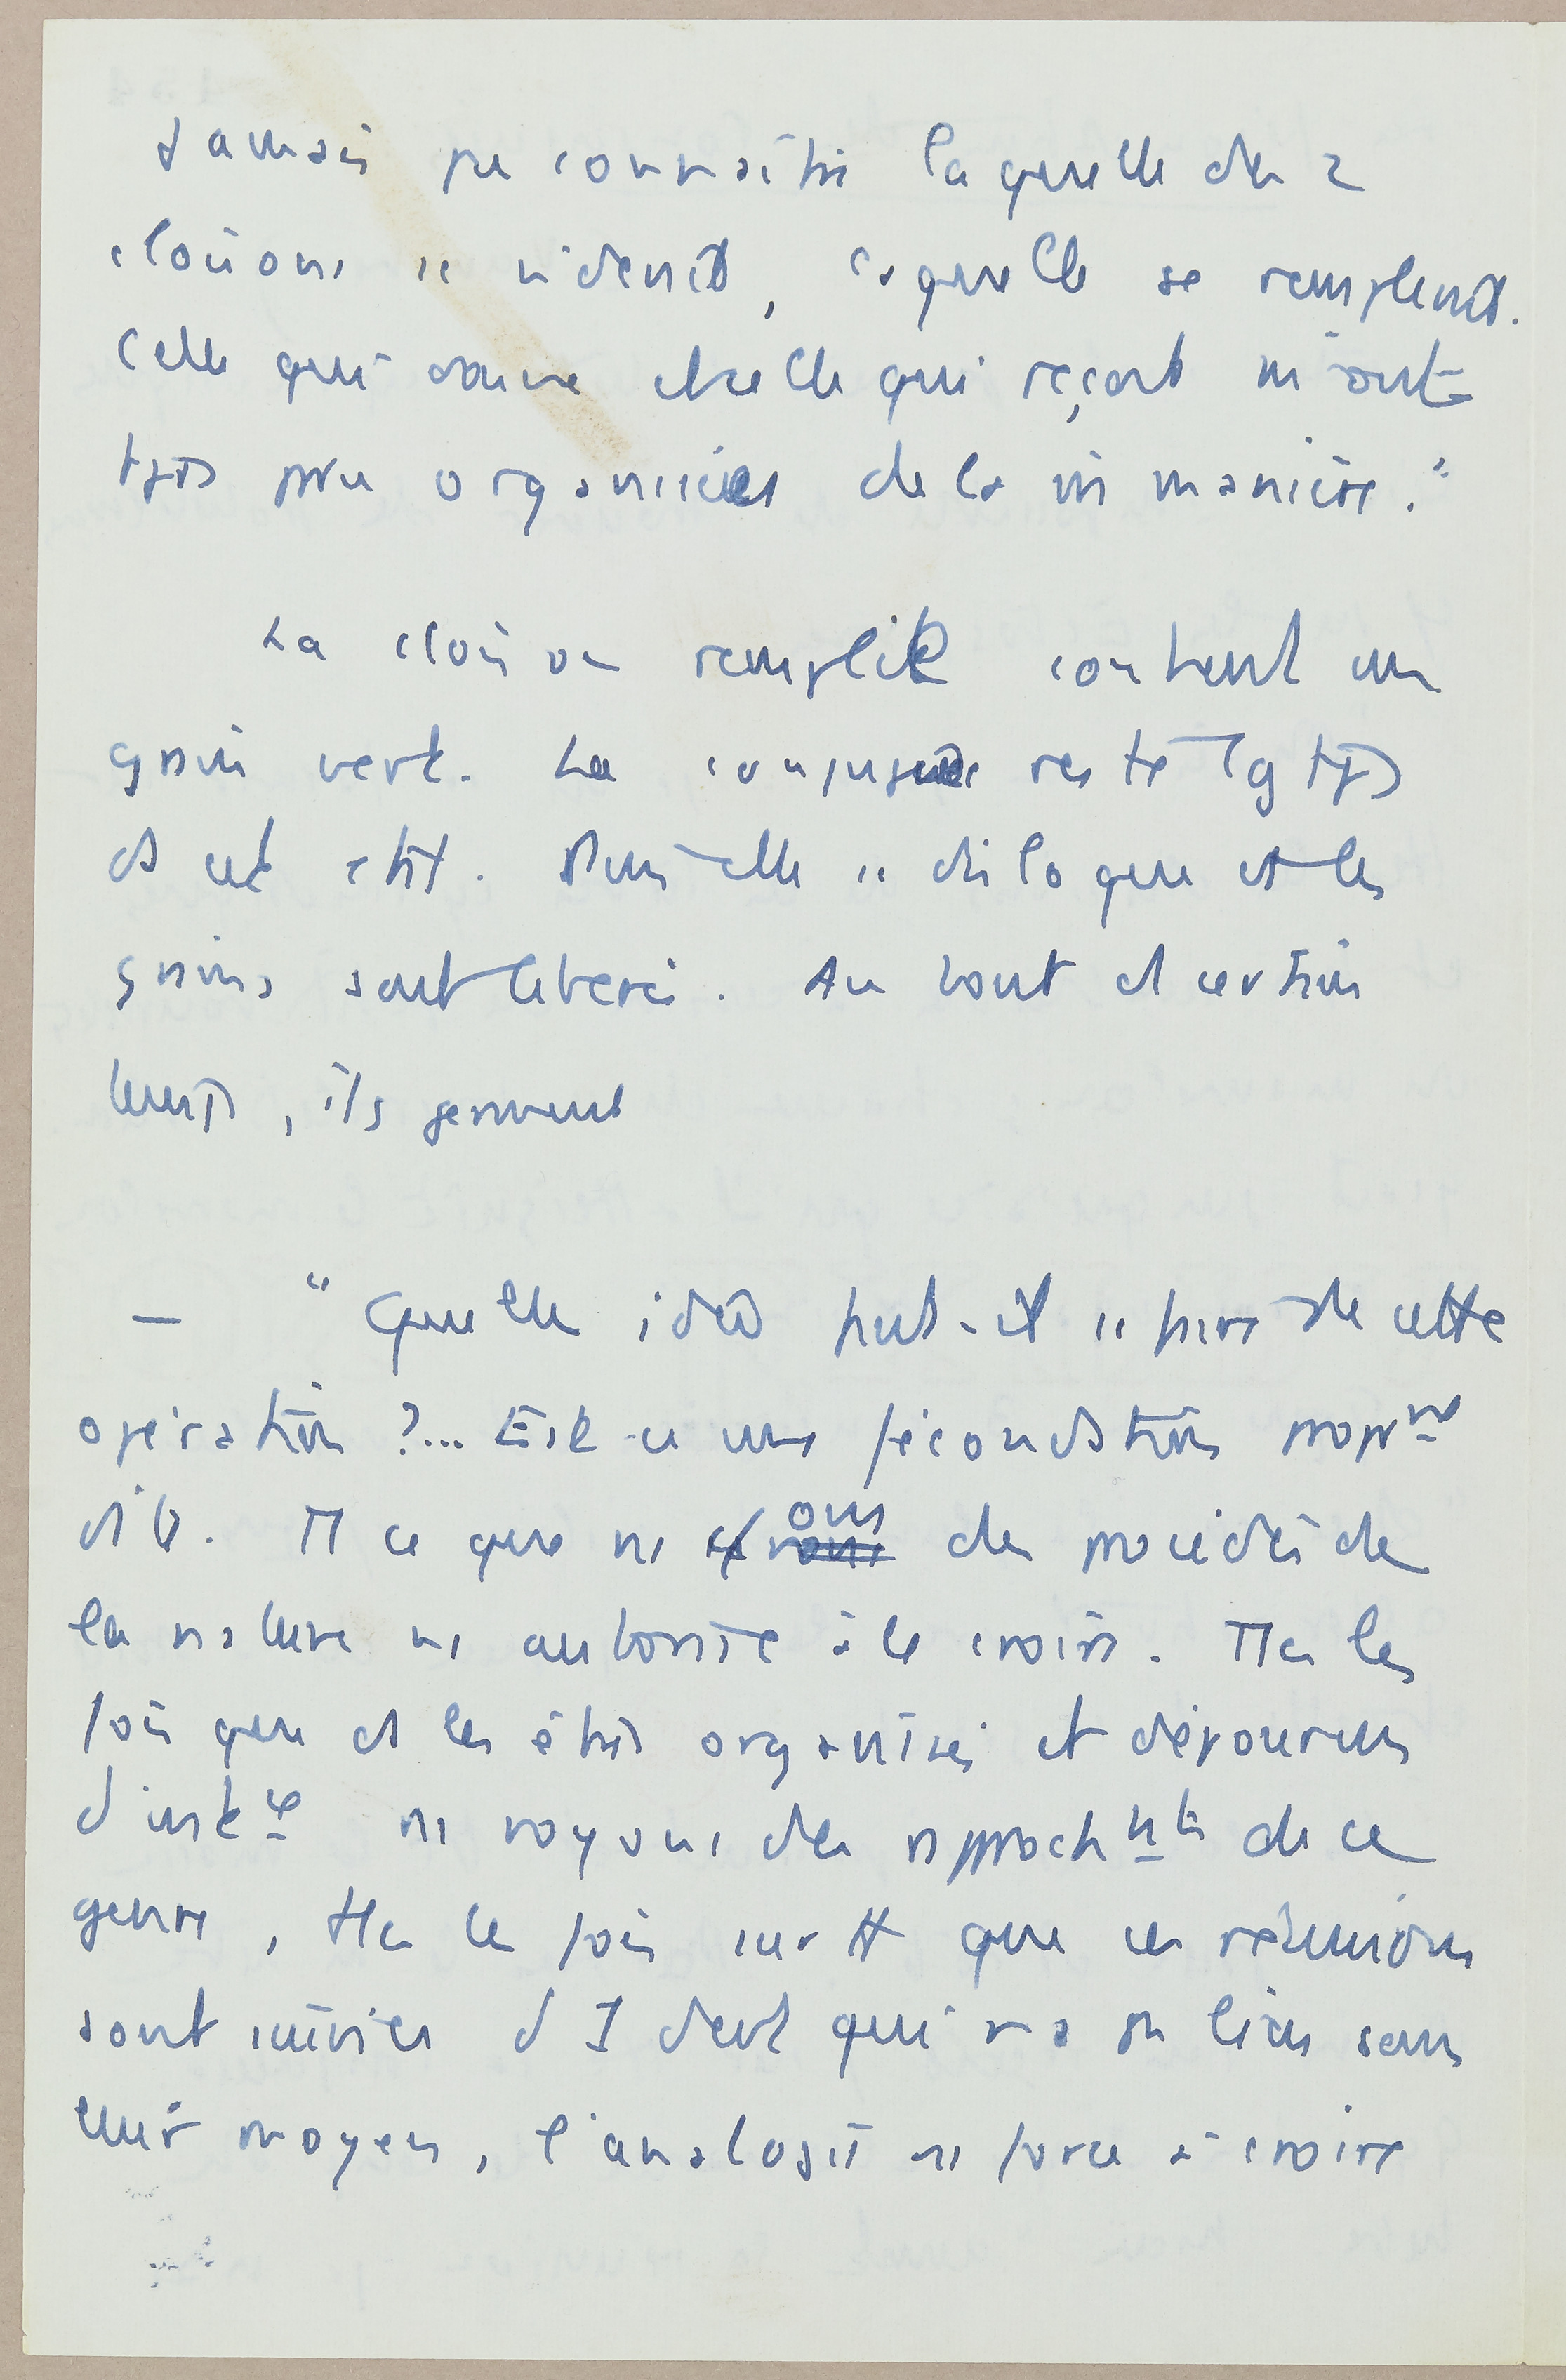 Jamais pu connaître laquelle des 2
cloisons se videroit, laquelle se rempliroit.
Celle qui donne et celle qui reçoit m'ont
tjrs paru organisées de la m̂ manière."
La cloison remplie contient un
grain vert. La conjuguée reste lg tps
ds cet état. Puis elle se disloque et les
grains sont liberés. Au bout d certain
temps, ils germent
— "Quelle idée peut-il se faire de cette
opération ?... Est-ce une fécondation propᵐᵗ
dite. M ce que ns ons des procédés de
la nature ns autorise à le croire. Ttes les
fois que ds les êtres organisés et dépourvus
d'intᶜᵉ ns voyons des approchᵐᵗˢ de ce
genre, ttes les fois surtt que ces réunions
sont suivies d 1 devt qui n'a pu lieu sans
leur moyen, l'analogie ns force à croire